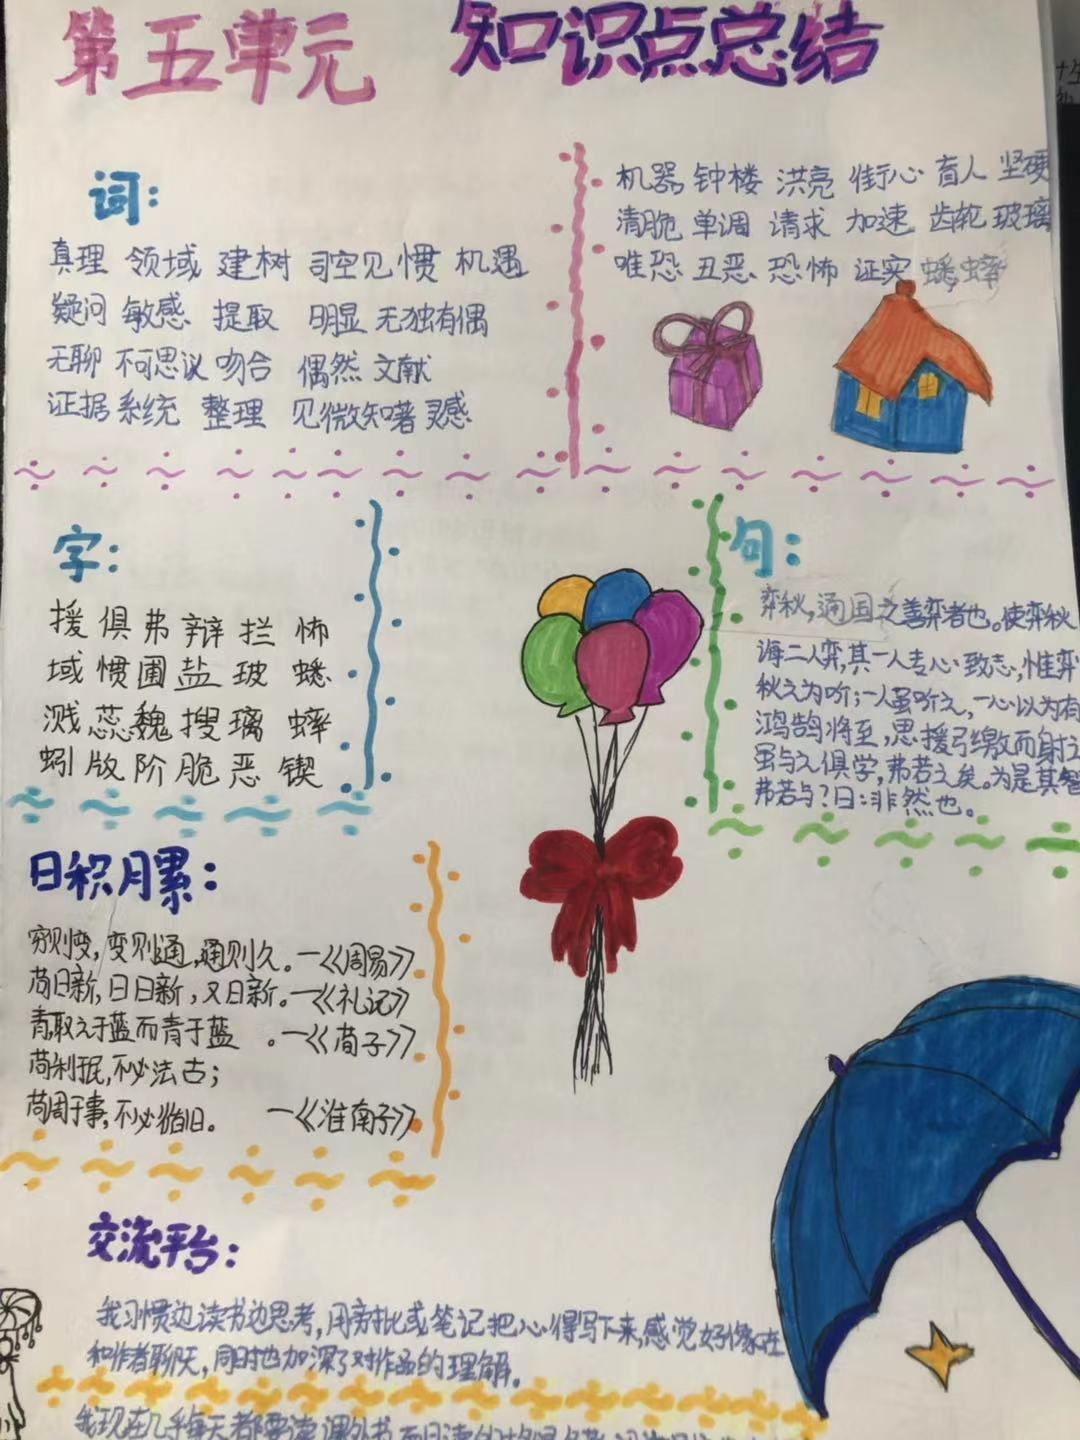 第五单元 知识点总结
词:
真理 领域 建树 司空见惯 机遇
疑问 敏感 提取 明显 无独有偶
无聊 不可思议 吻合 偶然 文献
证据 系统 整理 见微知著 灵感
机器 钟楼 洪亮 街心 盲人 坚硬
清脆 单调 请求 加速 齿轮 玻璃
唯恐 丑恶 恐怖 证实 蟋蟀
字:
援 俱 弗 辩 拦 怖
域 惯 圃 盐 玻 蟋
溅 蕊 魏 搜 璃 蟀
蚓 版 阶 脆 恶 锲
句:
弈秋,通国之善弈者也。使弈秋
诲二人弈,其一人专心致志,惟弈
秋之为听;一人虽听之,一心以为有
鸿鹄将至,思援弓缴而射之
虽与之俱学,弗若之矣。为是其智
弗若与?曰:非然也。
日积月累:
穷则变,变则通,通则久。—《周易》
苟日新,日日新,又日新。—《礼记》
青,取之于蓝而青于蓝 。—《荀子》
苟利于民,不必法古;
苟周于事,不必循旧。 —《淮南子》
交流平台:
我习惯边读书边思考,用旁批或笔记把心得写下来,感觉好像在
和作者聊天,同时也加深了对作品的理解。
我现在几乎每天都要读课外书